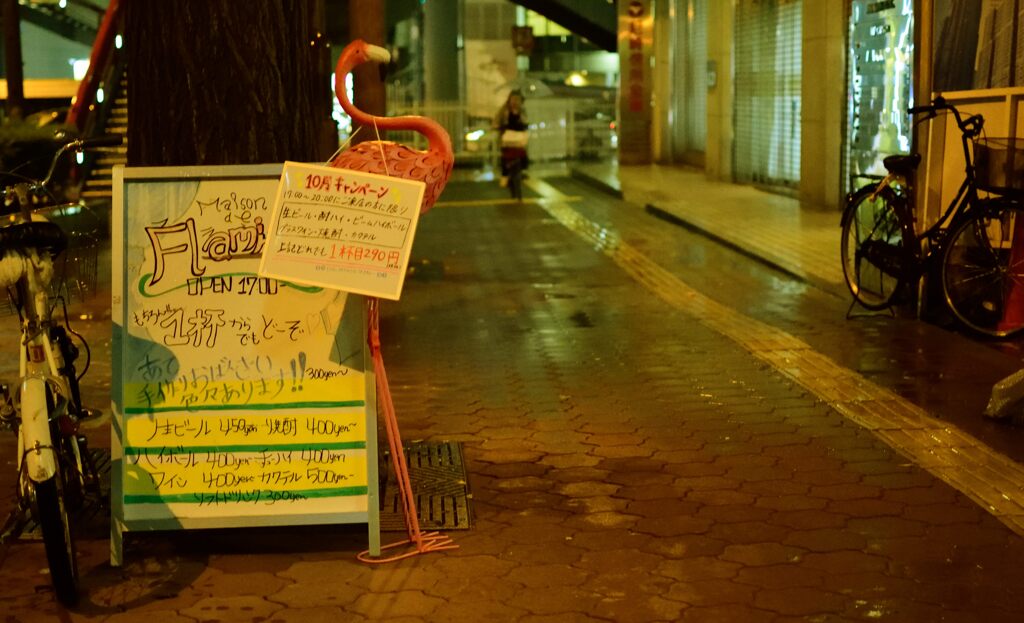 10月キャンペーン
17:00～20:00にご来店の方に限り
生ビール・酎ハイ・ビームハイボール
グラスワイン・焼酎・カクテル
上記どれでも1杯目290円
Maison
de
Flami
OPEN 17:00～
1杯からでもどーぞ
あの
手作りおばんざい
色々あります!! 300yen～
生ビール 450yen 焼酎 400yen～
ハイボール 400yen チューハイ 400yen
ワイン 400yen カクテル 500yen～
ソフトドリンク 300yen